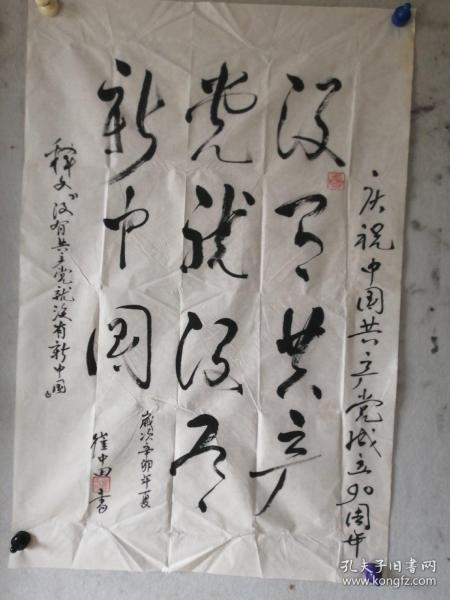 庆祝中国共产党成立90周年
没有共产
党就没有
新中国
岁次辛卯年夏
崔中田书
释文：“没有共产党就没有新中国”
孔夫子旧书网
www.kongfz.com